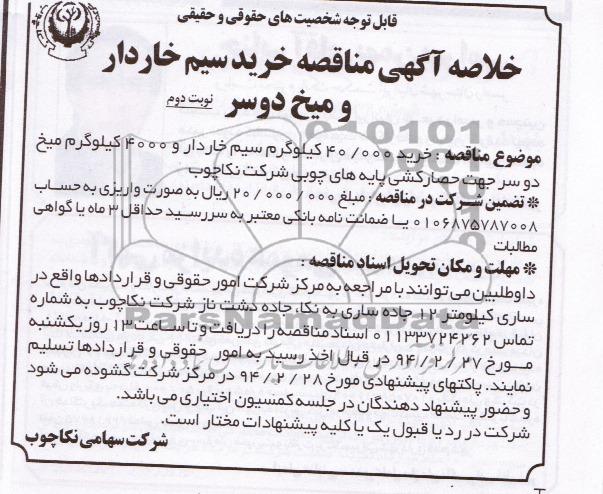 قابل توجه شخصیت های حقوقی و حقیقی
خلاصه آگهی مناقصه خرید سیم خاردار
و میخ دوسر نوبت دوم
موضوع مناقصه : خرید ۴۰/۰۰۰ کیلوگرم سیم خاردار و ۴۰۰۰ کیلوگرم میخ
دو سر جهت حصارکشی پایه های چوبی شرکت نکاچوب
* تضمین شرکت در مناقصه : مبلغ ۲۰/۰۰۰/۰۰۰ ریال به صورت واریزی به حساب
۰۱۰۶۸۷۵۷۸۷۰۰۸ یا ضمانت نامه بانکی معتبر به سررسید حداقل ۳ ماه یا گواهی
مطالبات
* مهلت و مکان تحویل اسناد مناقصه :
داوطلبین می توانند با مراجعه به مرکز شرکت امور حقوقی و قراردادها واقع در
ساری کیلومتر ۱۲ جاده ساری به نکا، جاده دشت ناز شرکت نکاچوب به شماره
تماس ۰۱۱۳۳۷۲۴۲۶۲ اسناد مناقصه را دریافت و تا ساعت ۱۳ روز یکشنبه
مورخ ۹۴/۲/۲۷ در قبال اخذ رسید به امور حقوقی و قراردادها تسلیم
نمایند. پاکتهای پیشنهادی مورخ ۹۴/۲/۲۸ در مرکز شرکت گشوده می شود
و حضور پیشنهاد دهندگان در جلسه کمسیون اختیاری می باشد.
شرکت در رد یا قبول یک یا کلیه پیشنهادات مختار است.
شرکت سهامی نکاچوب
ParsNamadData